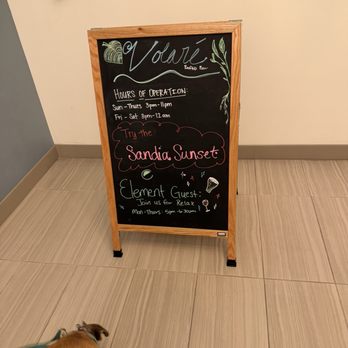 Volaré
HOURS OF OPERATION:
Sun - Thurs 3pm - 11pm
Fri - Sat 3pm - 12am
Try the:
Sandia Sunset
Element Guest:
Join us for Relax
Mon - Thurs: 5pm - 6:30pm!